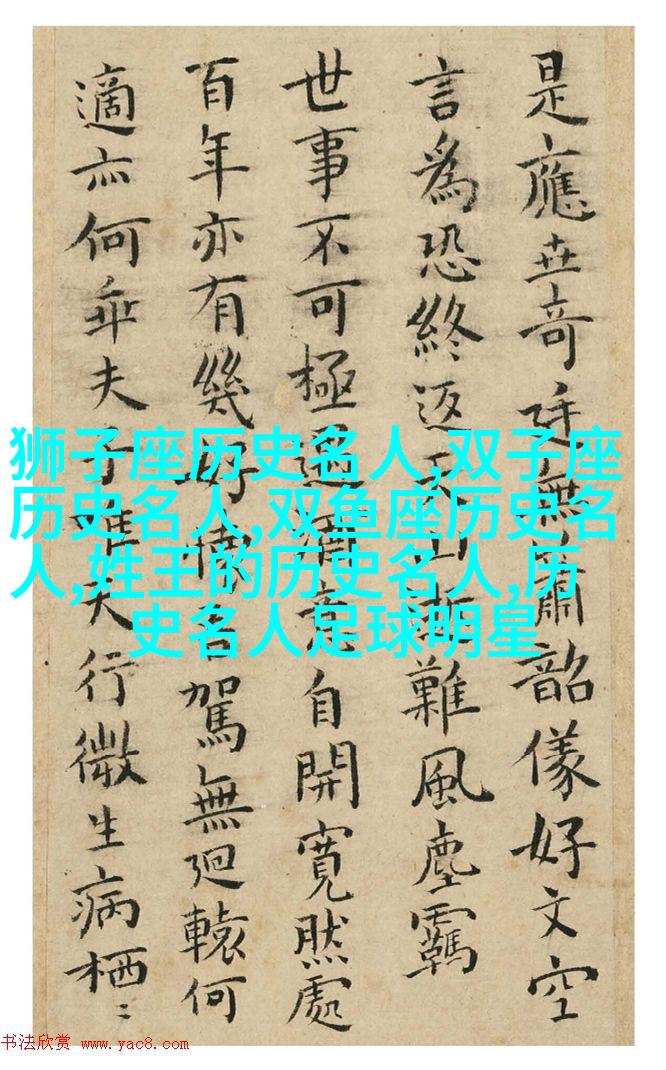 是應世奇逕無蕭韶儀好文空
言爲恐終返 山 難風塵羈
世事不可極遇 意自開寬然處
百年亦有幾好 名駕無迴轅何
適亦何乖夫子 夫行微生病栖〻
狮子座历史名人,双子座
历史名人,双鱼座历史名
人,姓王的历史名人,历
史名人足球明星
书法欣赏 www.yac8.com